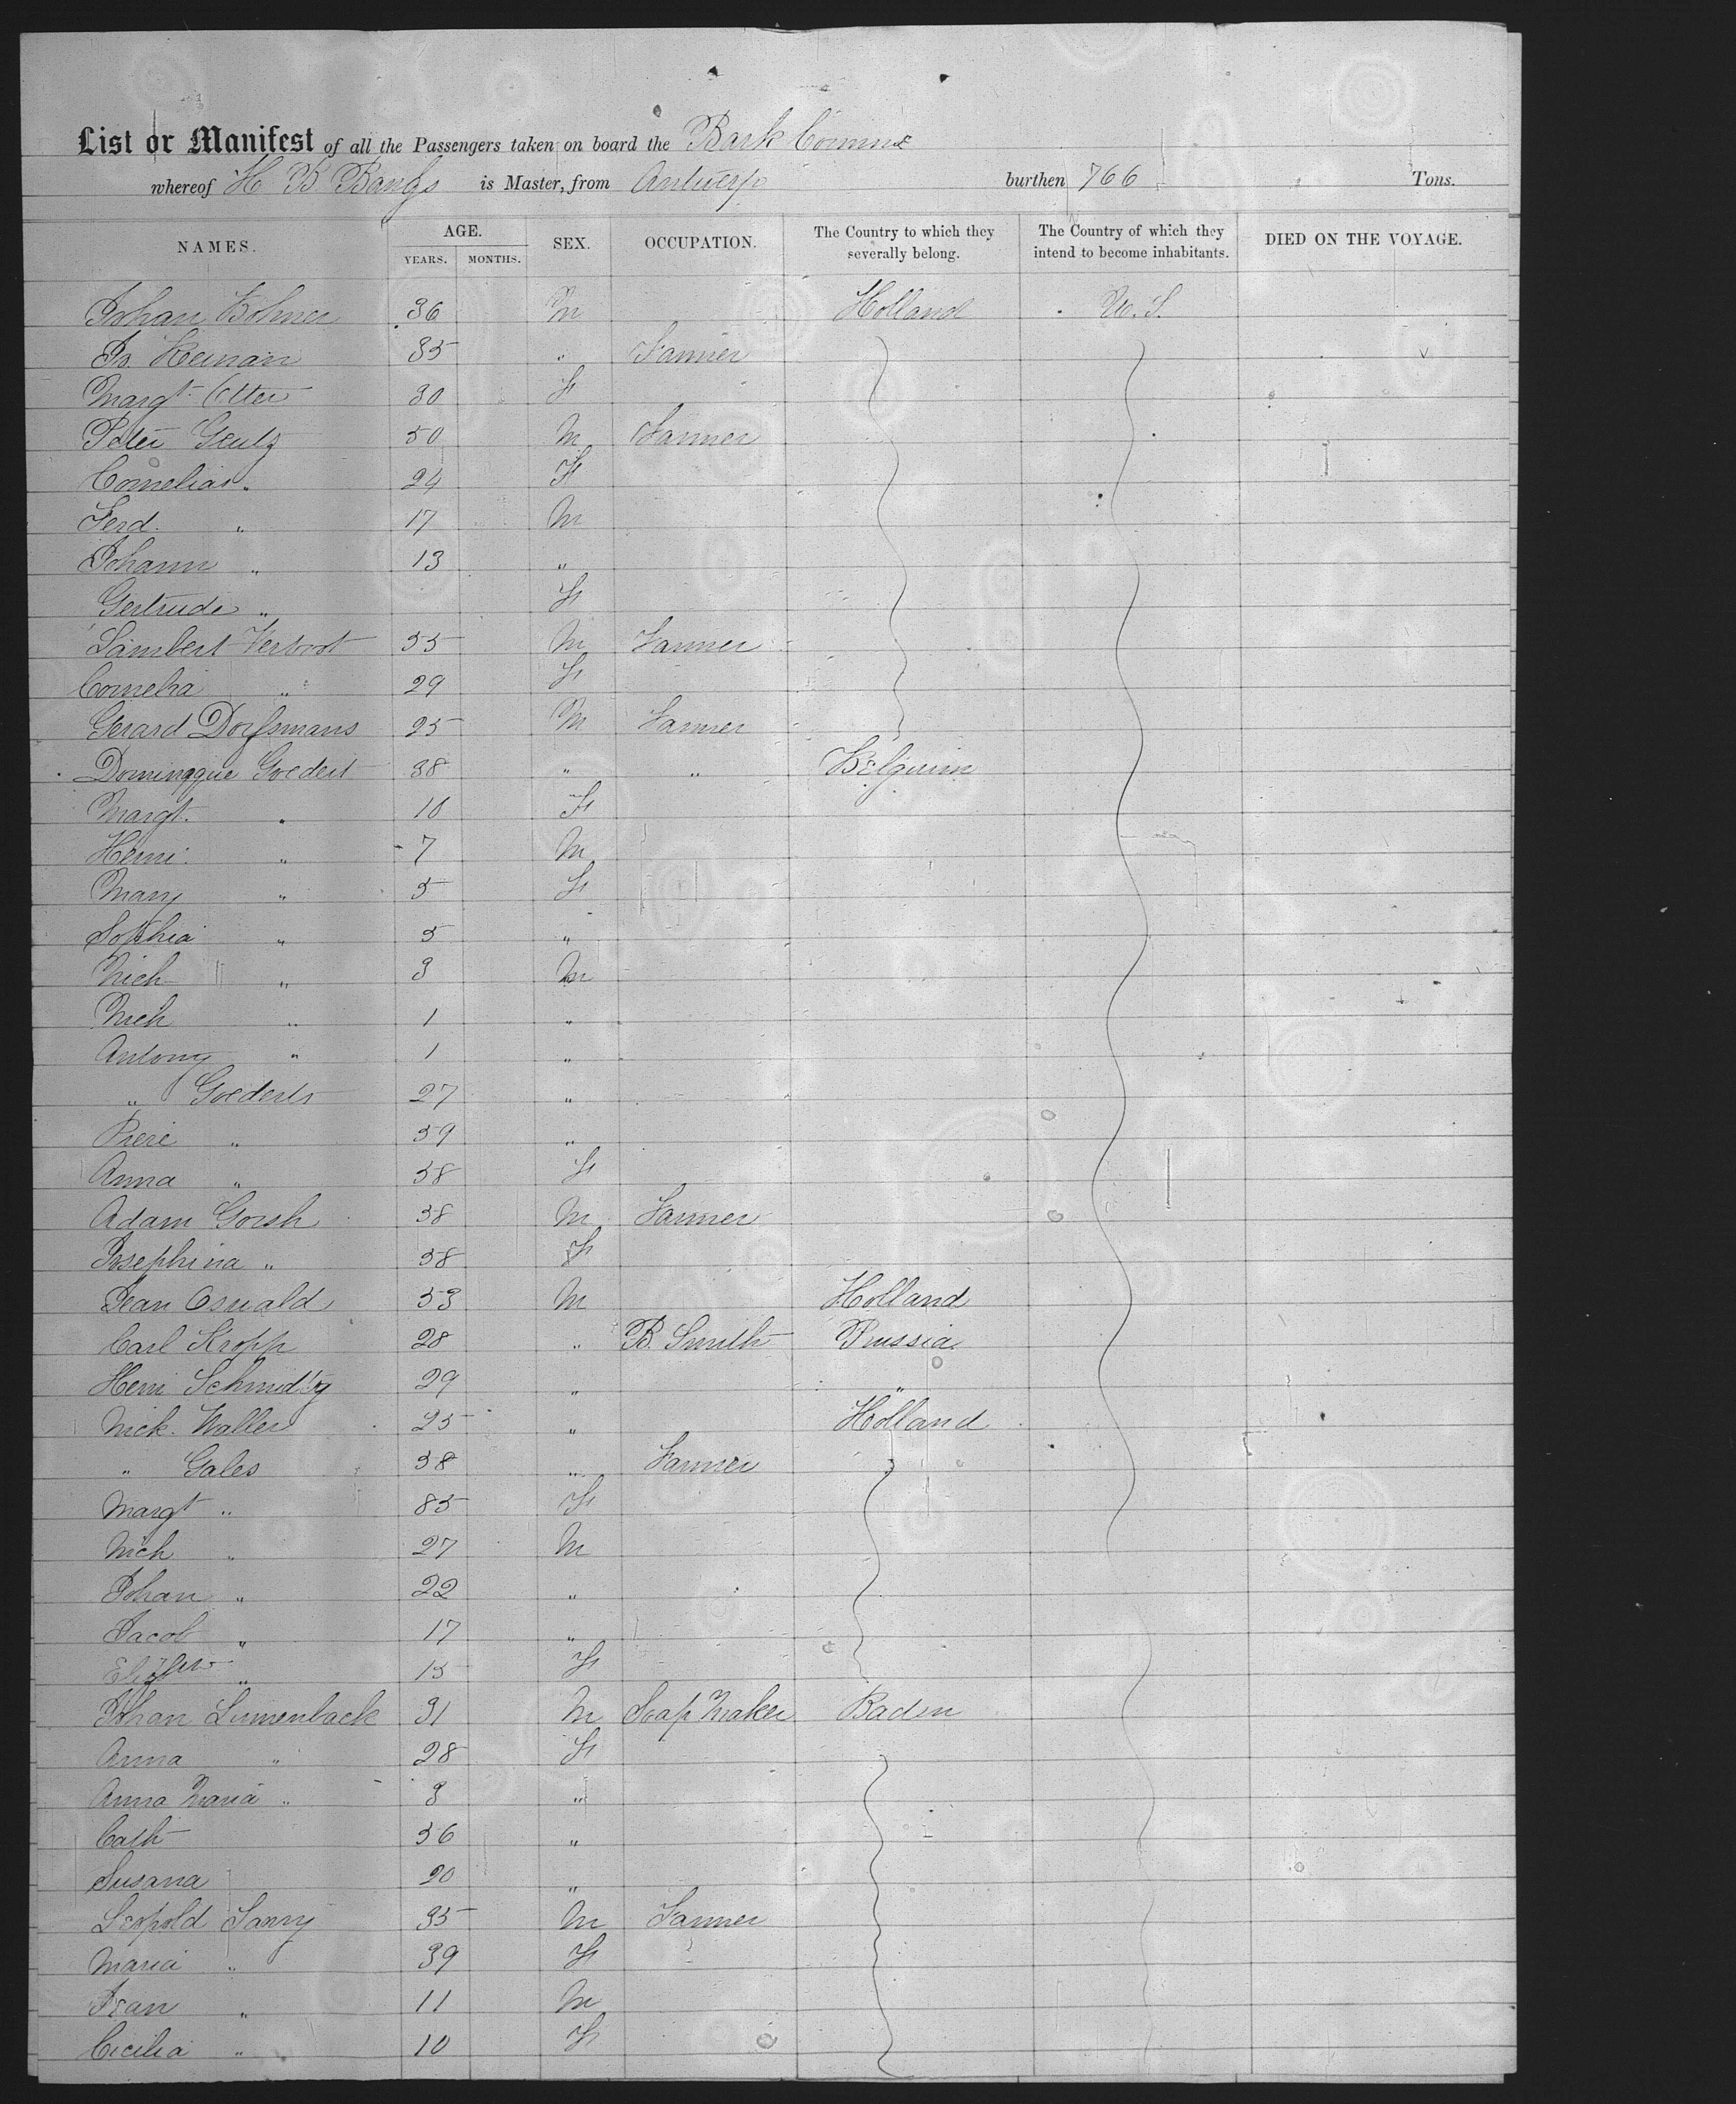 List or Manifest of all the Passengers taken on board the Bark
whereof H B Bangs is Master, from Antwerp burthen 766 Tons.
NAMES. AGE. YEARS. MONTHS. SEX. OCCUPATION. The Country to which they severally belong. The Country of which they intend to become inhabitants. DIED ON THE VOYAGE.
Johan Bohner 36 M Holland U.S.
Jo. 35 " Farmer
Margt. 30 F
Peter Geulz 50 M Farmer
Cornelia " 24 F
Ferd. " 17 M
Johann " 13 "
Gertrude " F
Lambert Verboot 55 M Farmer
Cornelia " 29 F
Gerard 25 M Farmer
Dominqque Goedert 38 " " Belguim
Margt. " 10 F
Henri " 7 M
Mary " 5 F
Sophia " 5 "
Nich " 3 M
Nich " 1 "
Antony " 1 "
" Goederts 27 "
Piere " 59 "
Anna " 58 F
Adam Gorsh 38 M Farmer
Josephina " 38 F
Jean Oswald 53 M Holland
Carl Kropp 28 " B. Smith Prussia
Henri 29 " "
Nick. Waller 25 " Holland
" Gales 58 " Farmer
Margt " 85 F
Nich " 27 M
Johan " 22 "
Jacob " 17 "
" 15 F
Johan Linnenback 31 M Soap Maker Baden
Anna " 28 F
Anna Maria " 3 "
Cath 56 "
Susana 20 "
Leopold 35 M Farmer
Maria " 39 F
Jean " 11 M
Cicilia " 10 F